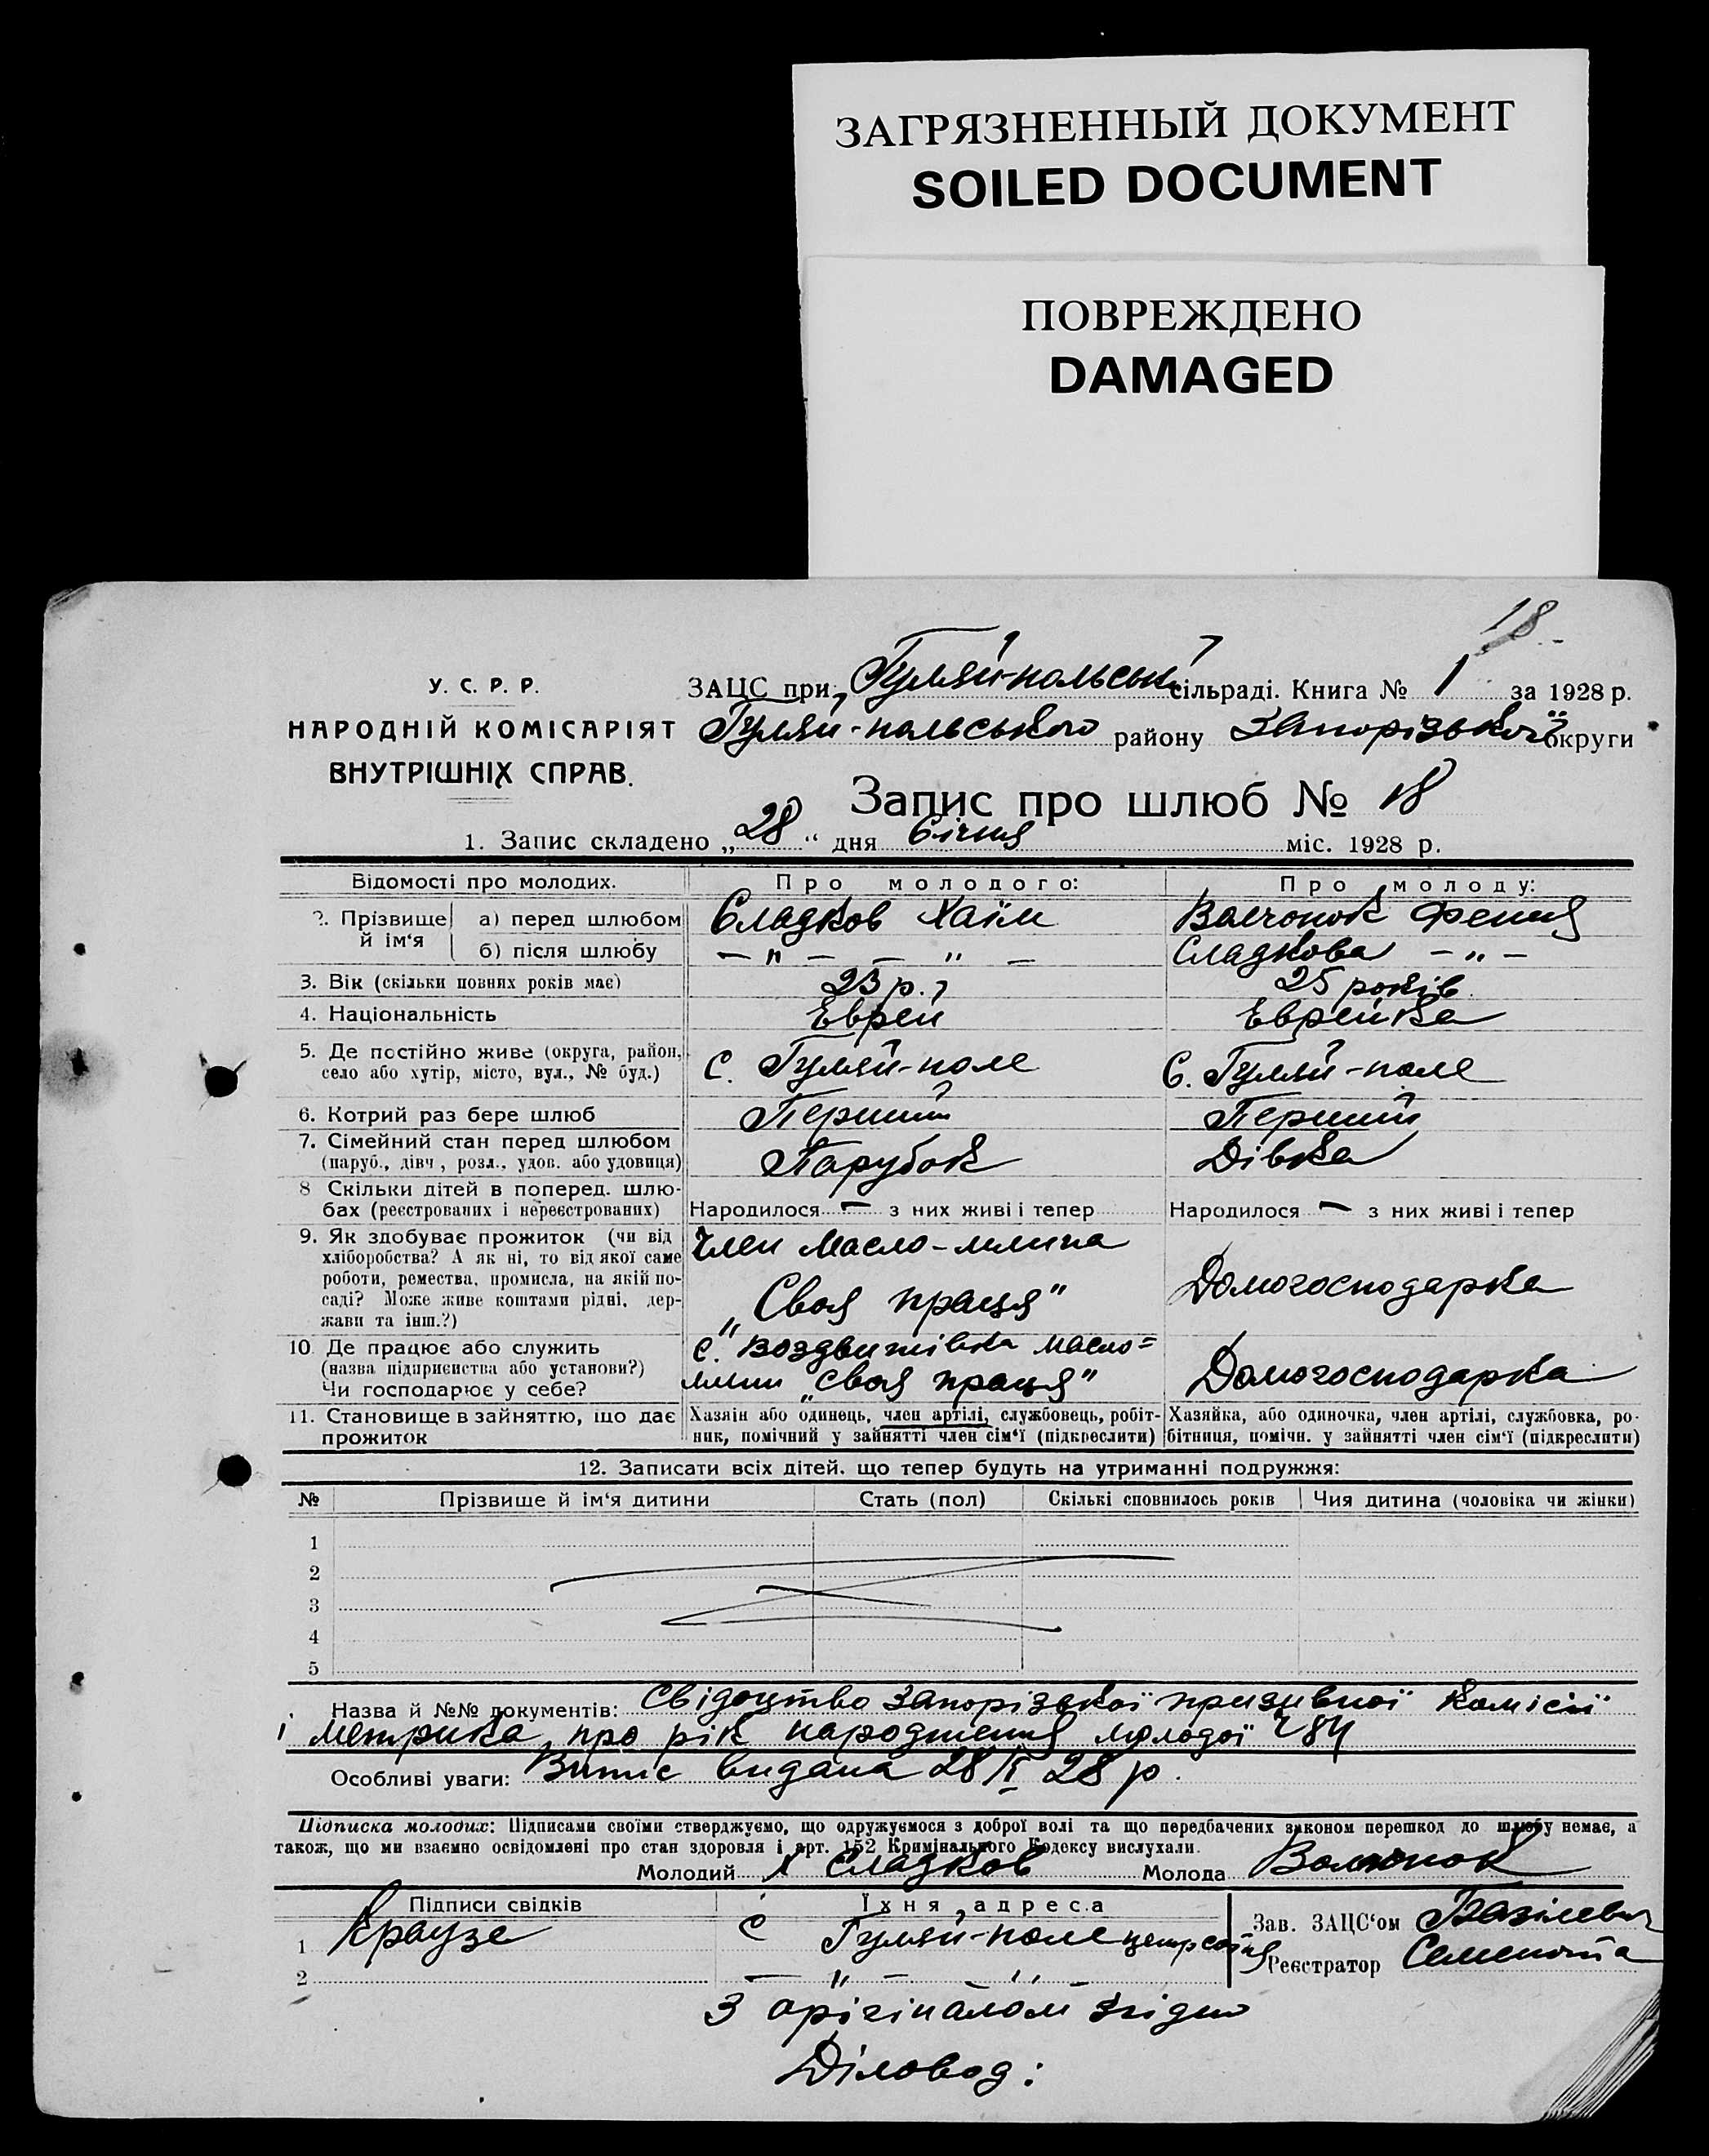 ЗАГРЯЗНЕННЫЙ ДОКУМЕНТ
SOILED DOCUMENT
ПОВРЕЖДЕНО
DAMAGED
18
У. С. Р. Р.
НАРОДНІЙ КОМІСАРІЯТ
ВНУТРІШНІХ СПРАВ.
ЗАЦС при Гуляй-польській сільраді. Книга № 1 за 1928 р.
Гуляй-польського району Запорізької округи
Запис про шлюб № 18
1. Запис складено „28" дня Січня міс. 1928 р.
Відомості про молодих. Про молодого: Про молоду:
2. Прізвище й ім'я а) перед шлюбом Сладков Хаїм Волчонок Фення
б) після шлюбу — " — — " — Сладкова — " —
3. Вік (скільки повних років має) 23 р. 25 років
4. Національність Еврей Еврейка
5. Де постійно живе (округа, район, село або хутір, місто, вул., № буд.) С. Гуляй-поле С. Гуляй-поле
6. Котрий раз бере шлюб Перший Перший
7. Сімейний стан перед шлюбом (паруб., дівч., розл., удов. або удовиця) Парубок Дівка
8 Скільки дітей в поперед. шлюбах (реєстрованих і нереєстрованих) Народилося — з них живі і тепер Народилося — з них живі і тепер
9. Як здобуває прожиток (чи від хліборобства? А як ні, то від якої саме роботи, ремества, промисла, на якій посаді? Може живе коштами рідні, держави та інш.?) Член Масло-млина „Своя праця" Домогосподарка
10 Де працює або служить (назва підприєнства або установи?) Чи господарює у себе? с. Воздвижівка масло=млин „своя праця" Домогосподарка
11. Становище в зайняттю, що дає прожиток Хазяін або одинець, член артілі, службовець, робітник, помічний у зайнятті член сім'ї (підкреслити) Хазяйка, або одиночка, член артілі, службовка, робітниця, помічн. у зайнятті член сім'ї (підкреслити)
12. Записати всіх дітей, що тепер будуть на утриманні подружжя:
№ Прізвище й ім'я дитини Стать (пол) Скількі сповнилось років Чия дитина (чоловіка чи жінки)
1
2
3
4
5
Назва й №№ документів: Свідоцтво Запорізької призивної комісії
і метрика про рік народження молодої
Особливі уваги: Випис видана 28/I 28 р.
Підписка молодих: Підписами своїми стверджуємо, що одружуємося з доброї волі та що передбачених законом перешкод до шлюбу немає, а
також, що ми взаємно освідомлені про стан здоровля і арт. 152 Кримінального Кодексу вислухали.
Молодий Х Сладков Молода Волчонок
Підписи свідків Їхня адреса
1 Краузе С Гуляй-поле
2 — " — "
Зав. ЗАЦС'ом Базілевич
Реєстратор
З орігіналом згідно
Діловод: